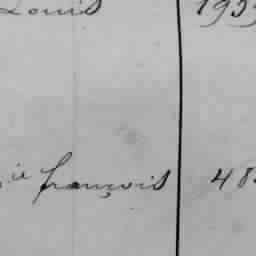 Louis 193
françois 48